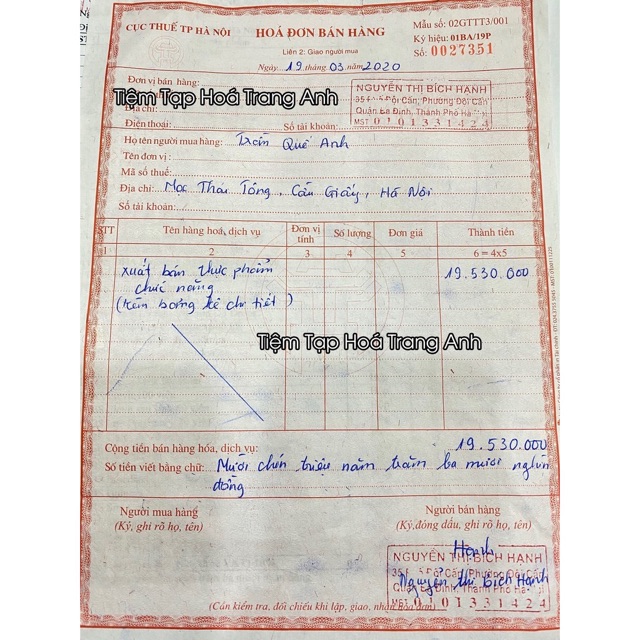 CỤC THUẾ TP HÀ NỘI
HOÁ ĐƠN BÁN HÀNG
Mẫu số: 02GTTT3/001
Liên 2: Giao người mua
Ký hiệu: 01BA/19P
Số: 0027351
Ngày 19 tháng 03 năm 2020
Đơn vị bán hàng:
NGUYỄN THỊ BÍCH HẠNH
Tiệm Tạp Hoá Trang Anh
Địa chỉ:
Đội Cấn, Phường Đội Cấn
Quận Ba Đình, Thành Phố Hà
Điện thoại: Số tài khoản:
MST 0101331424
Họ tên người mua hàng: Trần Quế Anh
Tên đơn vị:
Mã số thuế:
Địa chỉ: Mạc Thái Tông, Cầu Giấy, Hà Nội
Số tài khoản:
STT Tên hàng hoá, dịch vụ Đơn vị tính Số lượng Đơn giá Thành tiền
1 2 3 4 5 6 = 4x5
xuất bán thực phẩm 19.530.000
chức năng
(kèm bảng kê chi tiết)
Tiệm Tạp Hoá Trang Anh
Cộng tiền bán hàng hóa, dịch vụ: 19.530.000
Số tiền viết bằng chữ: Mười chín triệu năm trăm ba mươi nghìn
đồng
Người mua hàng
(Ký, ghi rõ họ, tên)
Người bán hàng
(Ký, đóng dấu, ghi rõ họ, tên)
Hạnh
NGUYỄN THỊ BÍCH HẠNH
Đội Cấn, Phường Đội Cấn
Nguyễn Thị Bích Hạnh
Quận Ba Đình, Thành Phố Hà
01331424
(Cần kiểm tra, đối chiếu khi lập, giao, nhận hóa đơn)